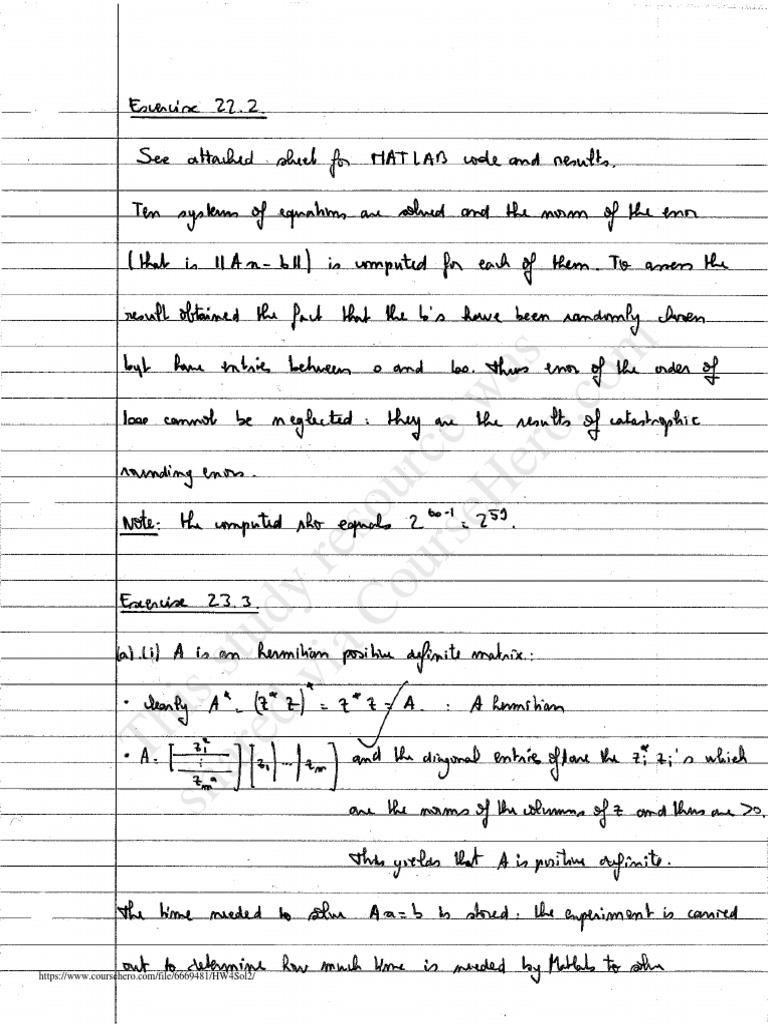 Exercise 22.2
See attached sheet for MATLAB code and results.
Ten systems of equations are solved and the norm of the error
(that is ||Ax-b||) is computed for each of them. To assess the
result obtained the fact that the b's have been randomly chosen
byt have entries between 0 and 100. Thus error of the order of
1000 cannot be neglected: they are the results of catastrophic
rounding errors.
Note: the computed rho equals 2^{60-1} = 2^{59}.
Exercise 23.3
(a).(i) A is an hermitian positive definite matrix:
• clearly A* = (Z* Z)* = Z* Z = A. : A hermitian
• A = [z₁* ⋮ z_m*] [z₁ | ... | z_m] and the diagonal entries of A are the z_i* z_i's which
are the norms of the columns of Z and thus are >0.
This yields that A is positive definite.
The time needed to solve Ax=b is stored. the experiment is carried
out to determine how much time is needed by Matlab to solve
https://www.coursehero.com/file/6669481/HW4Sol2/
This study resource was
shared via CourseHero.com